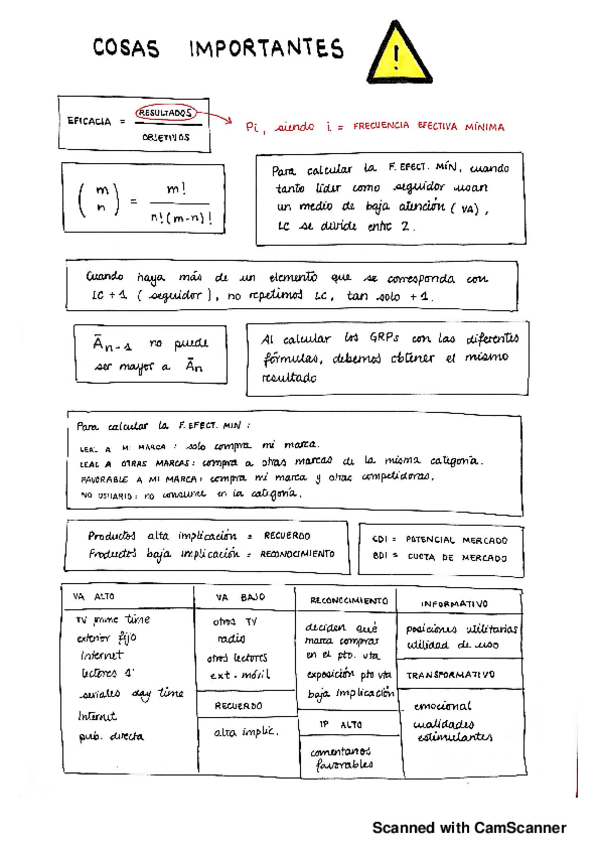 COSAS IMPORTANTES
!
EFICACIA = RESULTADOS
OBJETIVOS
Pi, siendo i = FRECUENCIA EFECTIVA MÍNIMA
( m n ) = m!
n!(m-n)!
Para calcular la F. EFECT. MÍN, cuando
tanto líder como seguidor usan
un medio de baja atención (VA),
LC se divide entre 2.
Cuando haya más de un elemento que se corresponda con
LC + 1 (seguidor), no repetimos LC, tan solo +1.
Ān-1 no puede
ser mayor a Ān
Al calcular los GRPs con las diferentes
fórmulas, debemos obtener el mismo
resultado
Para calcular la F. EFECT. MIN :
LEAL A MI MARCA : solo compra mi marca.
LEAL A OTRAS MARCAS : compra a otras marcas de la misma categoría.
FAVORABLE A MI MARCA : compra mi marca y otras competidoras.
NO USUARIO : no consume en la categoría.
Productos alta implicación = RECUERDO
Productos baja implicación = RECONOCIMIENTO
CDI = POTENCIAL MERCADO
BDI = CUOTA DE MERCADO
VA ALTO
TV prime time
exterior fijo
Internet
lectores 1º
seriales day time
Internet
pub. directa
VA BAJO
otros TV
radio
otros lectores
ext. móvil
RECUERDO
alta implic.
RECONOCIMIENTO
deciden qué
marca comprar
en el pto. vta
exposición pto vta
baja implicación
IP ALTO
comentarios
favorables
INFORMATIVO
posiciones utilitarias
utilidad de uso
TRANSFORMATIVO
emocional
cualidades
estimulantes
Scanned with CamScanner